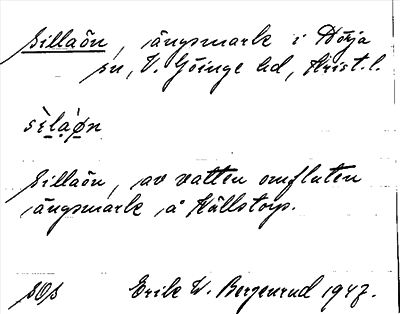 Sillaön, ängsmark i Dörja
sn, V. Göinge hd, Krist. l.
sìlá̠ø̠n
Sillaön, av vatten omfluten
ängsmark å Hällstorp.
sOs Erik W. Bergenrud 1947.